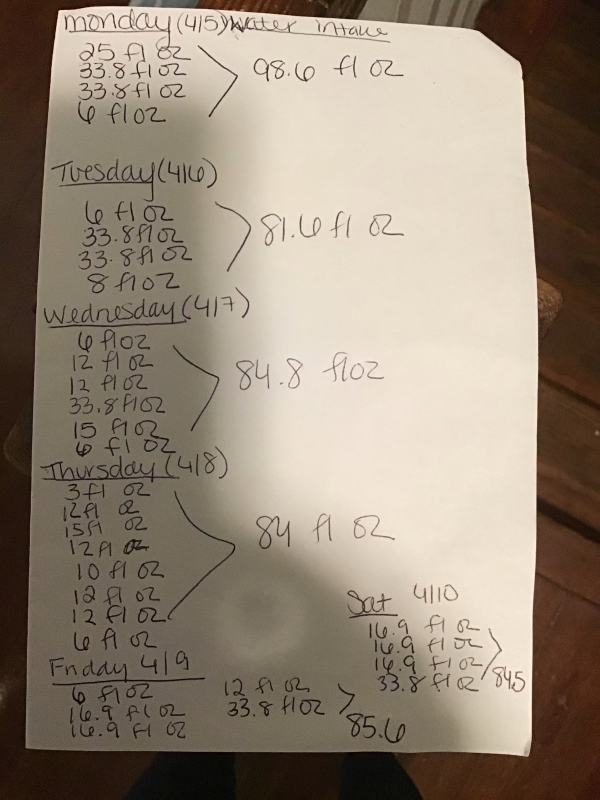 Monday (4/5) Water intake
25 fl oz
33.8 fl oz
33.8 fl oz
6 fl oz
98.6 fl oz
Tuesday (4/6)
6 fl oz
33.8 fl oz
33.8 fl oz
8 fl oz
81.6 fl oz
Wednesday (4/7)
6 fl oz
12 fl oz
12 fl oz
33.8 fl oz
15 fl oz
6 fl oz
84.8 fl oz
Thursday (4/8)
3 fl oz
12 fl oz
15 fl oz
12 fl oz
10 fl oz
12 fl oz
12 fl oz
6 fl oz
84 fl oz
Friday 4/9
6 fl oz
16.9 fl oz
16.9 fl oz
12 fl oz
33.8 fl oz
85.6
Sat 4/10
16.9 fl oz
16.9 fl oz
16.9 fl oz
33.8 fl oz
84.5